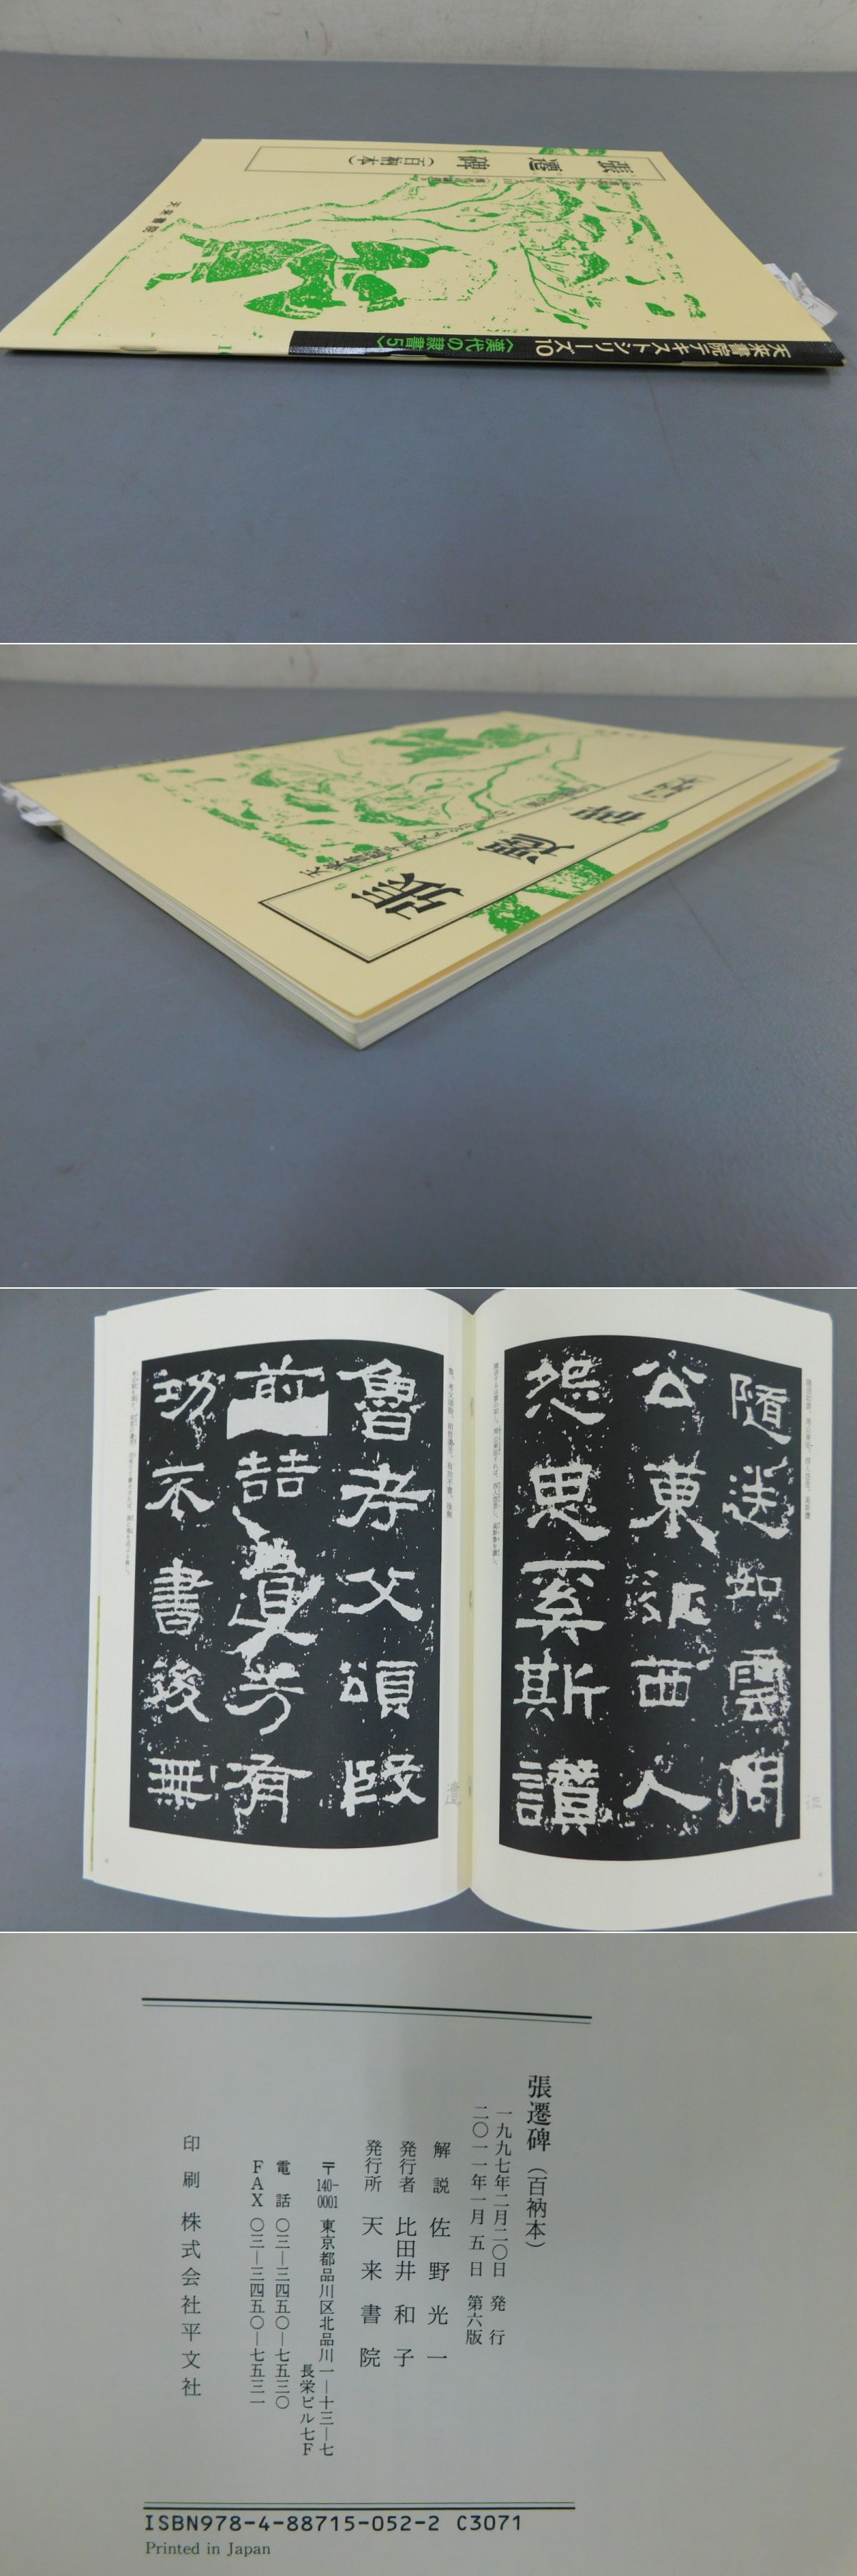 張遷碑(百衲本)
天来書院
天来書院テキストシリーズ10
〈漢代の隷書5〉
張遷碑
隨送如雲周
公東征西人
怨思奚斯讃
魯考父頌殷
前喆遺芳有
功不書後無
張遷碑(百衲本)
一九九七年二月二〇日 発行
二〇一一年一月五日 第六版
解説 佐野光一
発行者 比田井和子
発行所 天来書院
〒140-0001 東京都品川区北品川一―十三―七
長栄ビル七F
電話 〇三―三四五〇―七五三〇
FAX 〇三―三四五〇―七五三一
印刷 株式会社平文社
ISBN978-4-88715-052-2 C3071
Printed in Japan